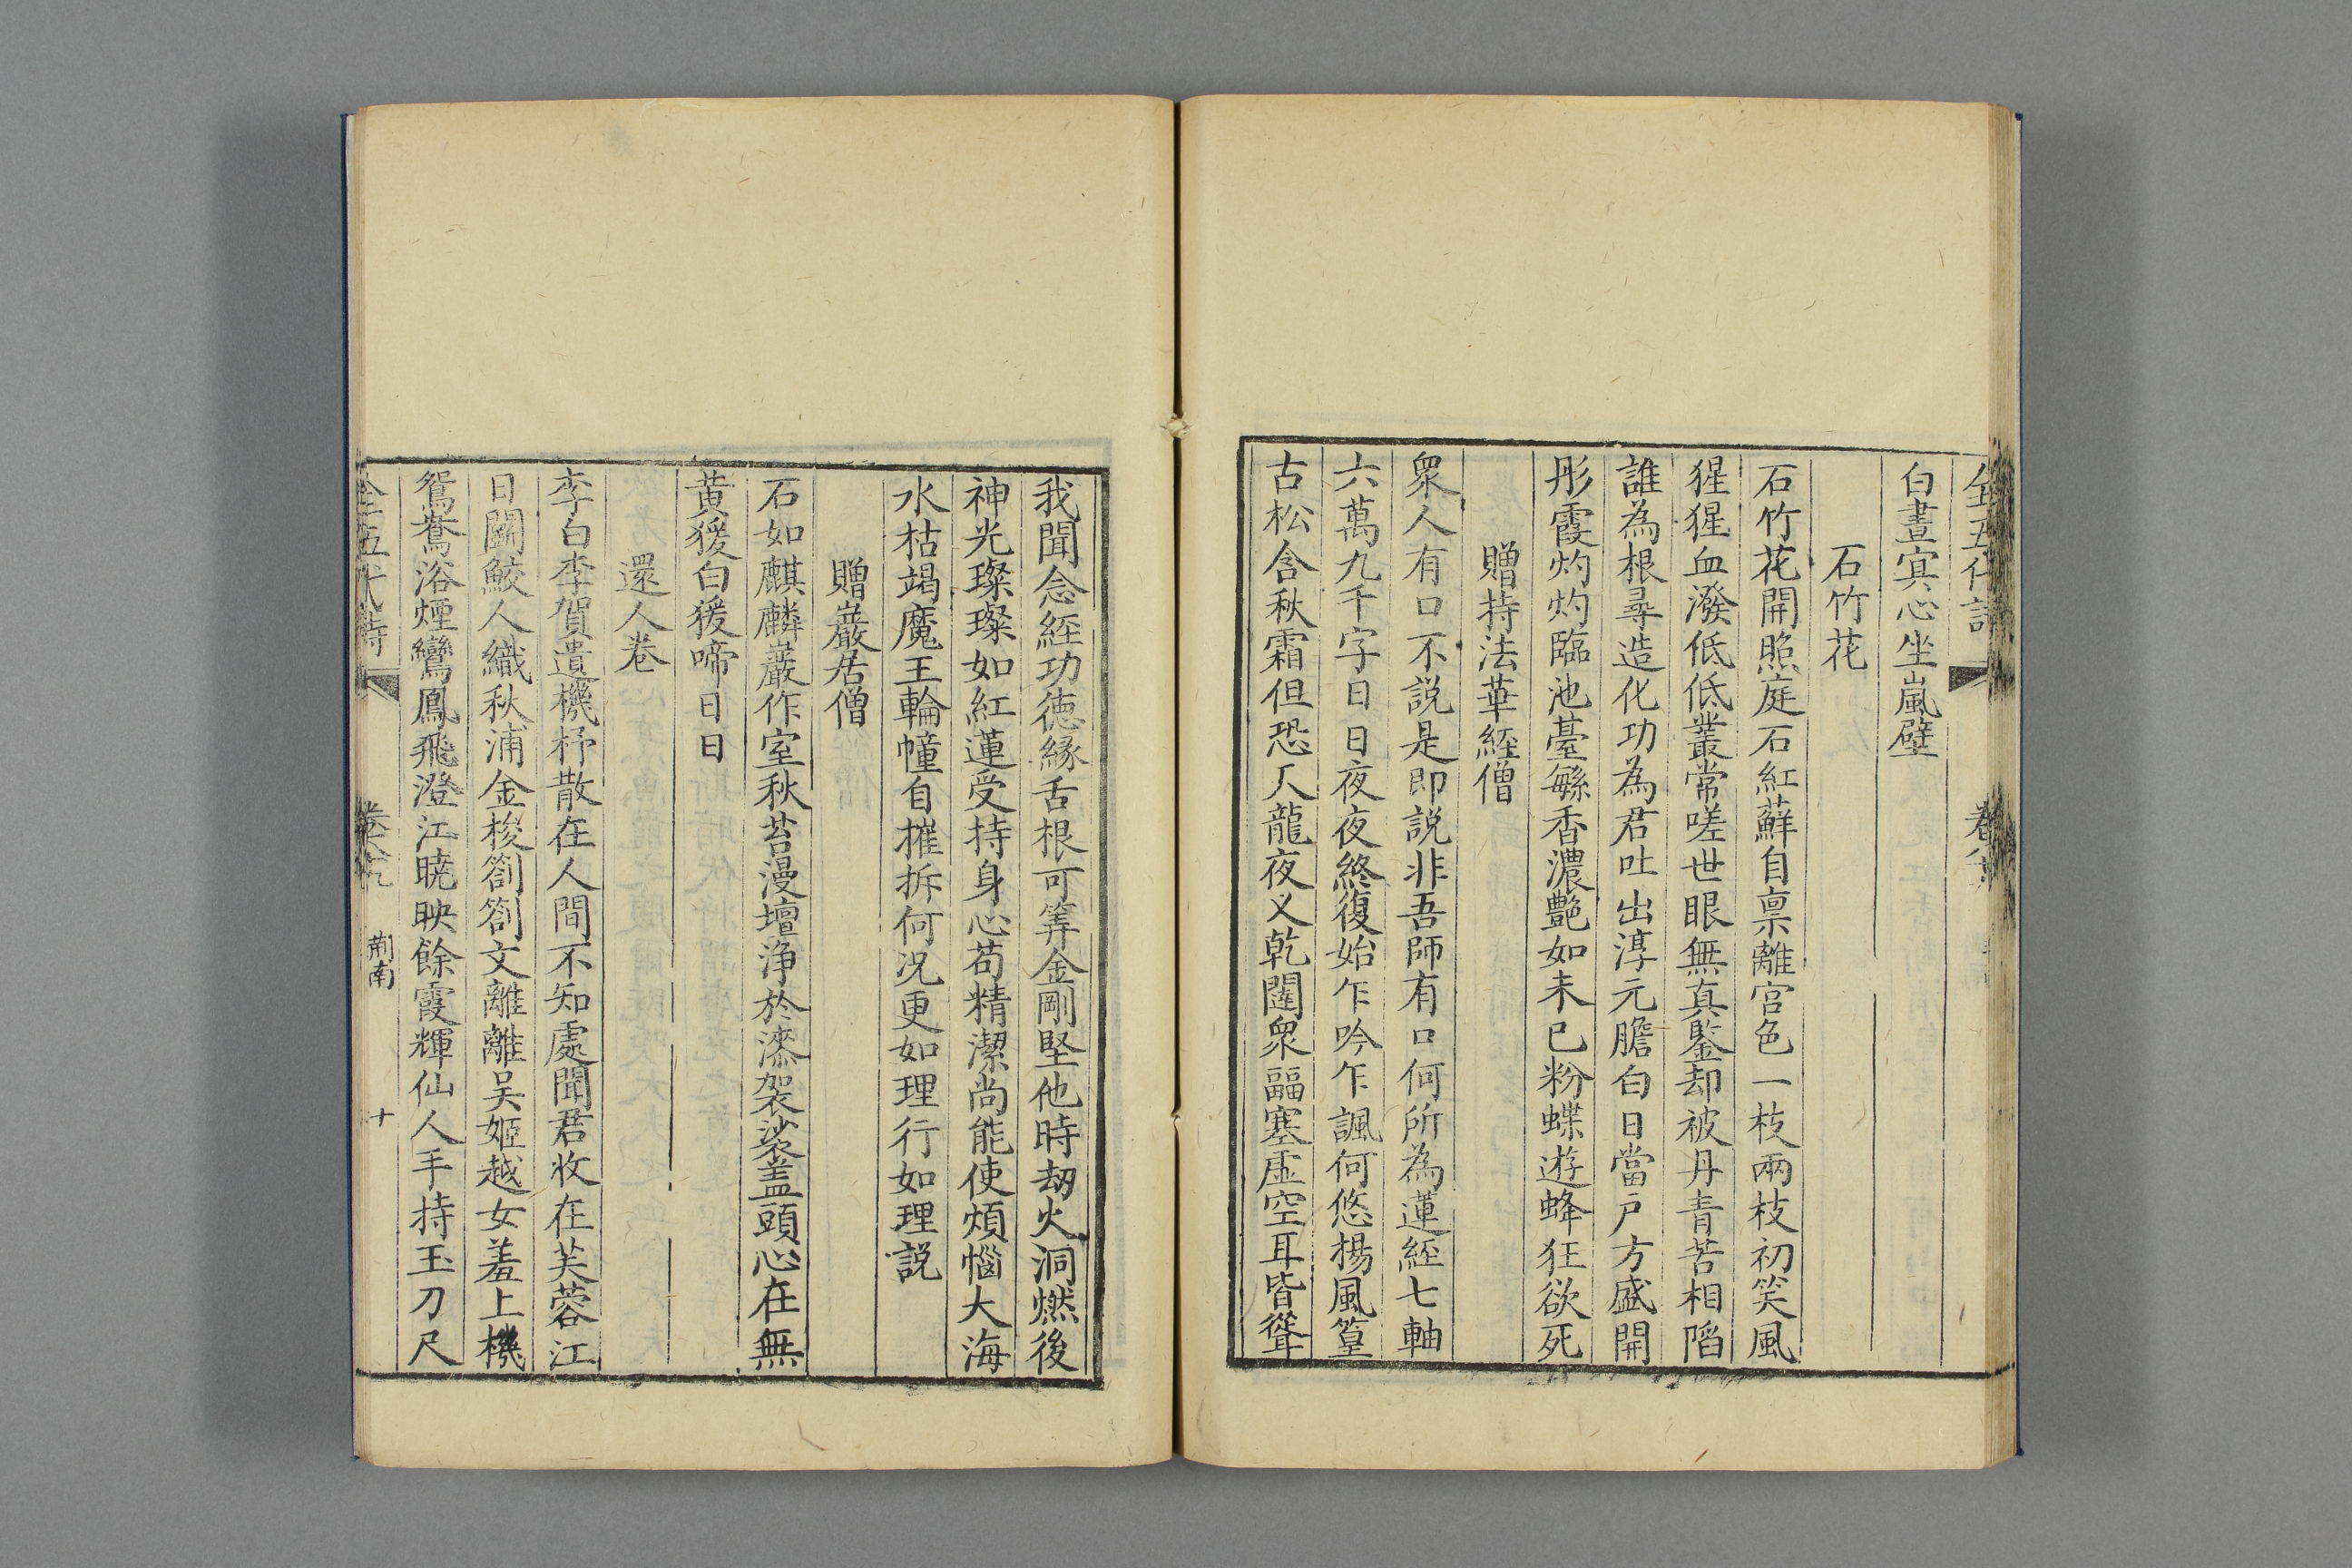 白晝㝠心坐嵐壁
石竹花
石竹花開照庭石紅蘚自禀離宫色一枝兩枝初笑風
猩猩血潑低低叢常嗟世眼無真鑒却被丹青苦相陷
誰為根尋造化功為君吐出淳元膽白日當户方盛開
彤霞灼灼臨池臺繁香濃艷如未已粉蝶遊蜂狂欲死
贈持法華經僧
衆人有口不説是即説非吾師有口何所為蓮經七軸
六萬九千字日日夜夜終復始乍吟乍諷何悠揚風篁
古松含秋霜但恐天龍夜叉乾闥衆畐塞虛空耳皆聳
我聞念經功德緣舌根可筭金剛堅他時刼火洞燃後
神光璨璨如紅蓮受持身心苟精潔尚能使煩惱大海
水枯竭魔王輪幢自摧拆何况更如理行如理説
贈巖居僧
石如麒麟巖作室秋苔漫壇淨於漆袈裟盖頭心在無
黄猨白猨啼日日
還人卷
李白李賀遺機杼散在人間不知處聞君收在芙蓉江
日鬬鮫人織秋浦金梭劄劄文離離吴姬越女羞上機
鴛鴦浴煙鸞鳳飛澄江曉映餘霞輝仙人手持玉刀尺
全五代詩 荆南 十